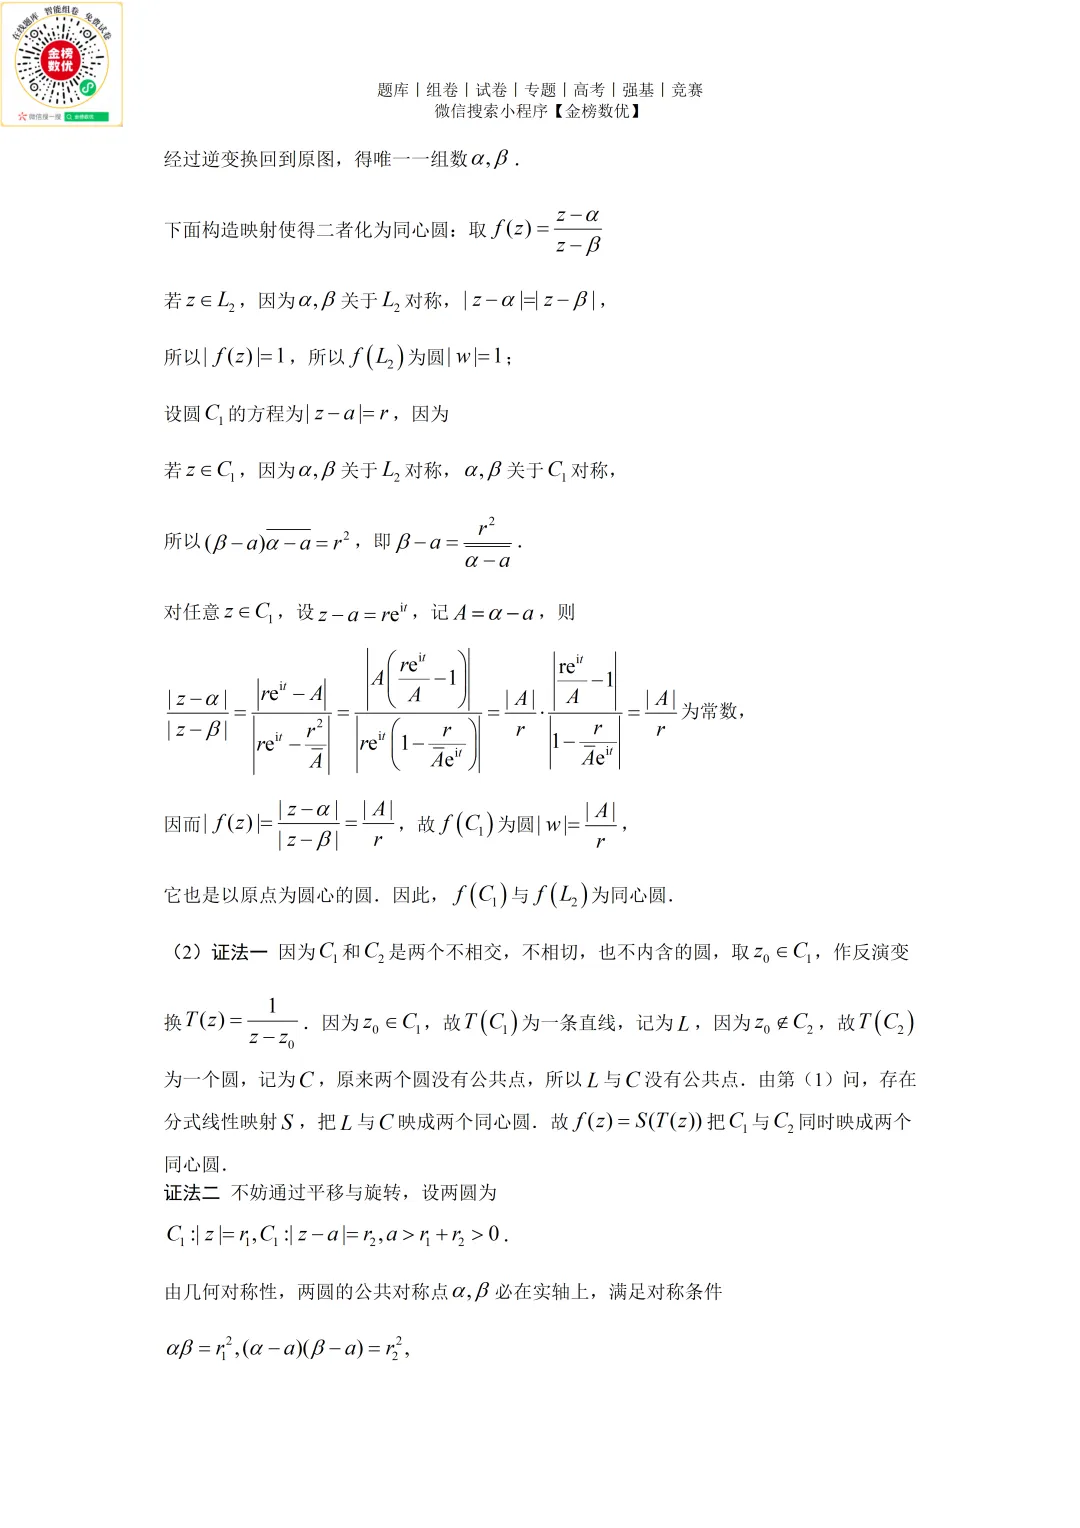 在线题库 智能组卷 免费试卷
金榜
数优
微信搜一搜 金榜数优
题库 | 组卷 | 试卷 | 专题 | 高考 | 强基 | 竞赛
微信搜索小程序【金榜数优】
经过逆变换回到原图，得唯一一组数α,β．
下面构造映射使得二者化为同心圆：取 f(z) = (z−α)/(z−β)
若 z∈L₂，因为α,β关于L₂对称，|z−α|=|z−β|，
所以|f(z)|=1，所以 f(L₂)为圆|w|=1；
设圆C₁的方程为|z−a|=r，因为
若 z∈C₁，因为α,β关于L₂对称，α,β关于C₁对称，
所以 $(\beta-a)\overline{\alpha-a}=r^2$，即 $\beta-a=\frac{r^2}{\overline{\overline{\alpha-a}}}$．
对任意 z∈C₁，设 $z-a=re^{it}$，记 A=α−a，则
$\frac{|z-\alpha|}{|z-\beta|}=\frac{\left|re^{it}-A\right|}{\left|re^{it}-\frac{r^2}{\overline{A}}\right|}=\frac{\left|A\left(\frac{re^{it}}{A}-1\right)\right|}{\left|re^{it}\left(1-\frac{r}{\overline{A}e^{it}}\right)\right|}=\frac{|A|}{r}\cdot\frac{\left|\frac{re^{it}}{A}-1\right|}{\left|1-\frac{r}{\overline{A}e^{it}}\right|}=\frac{|A|}{r}$为常数，
因而 $|f(z)|=\frac{|z-\alpha|}{|z-\beta|}=\frac{|A|}{r}$，故 f(C₁)为圆 $|w|=\frac{|A|}{r}$，
它也是以原点为圆心的圆．因此，f(C₁)与 f(L₂)为同心圆．
（2）证法一 因为C₁和C₂是两个不相交，不相切，也不内含的圆，取 z₀∈C₁，作反演变
换 $T(z)=\frac{1}{z-z_0}$．因为 z₀∈C₁，故T(C₁)为一条直线，记为L，因为 z₀∉C₂，故T(C₂)
为一个圆，记为C，原来两个圆没有公共点，所以L与C没有公共点．由第（1）问，存在
分式线性映射S，把L与C映成两个同心圆．故 f(z)=S(T(z))把C₁与C₂同时映成两个
同心圆．
证法二 不妨通过平移与旋转，设两圆为
C₁:|z|=r₁,C₁:|z−a|=r₂,a>r₁+r₂>0．
由几何对称性，两圆的公共对称点α,β必在实轴上，满足对称条件
$\alpha\beta=r_1^2,(\alpha-a)(\beta-a)=r_2^2$，